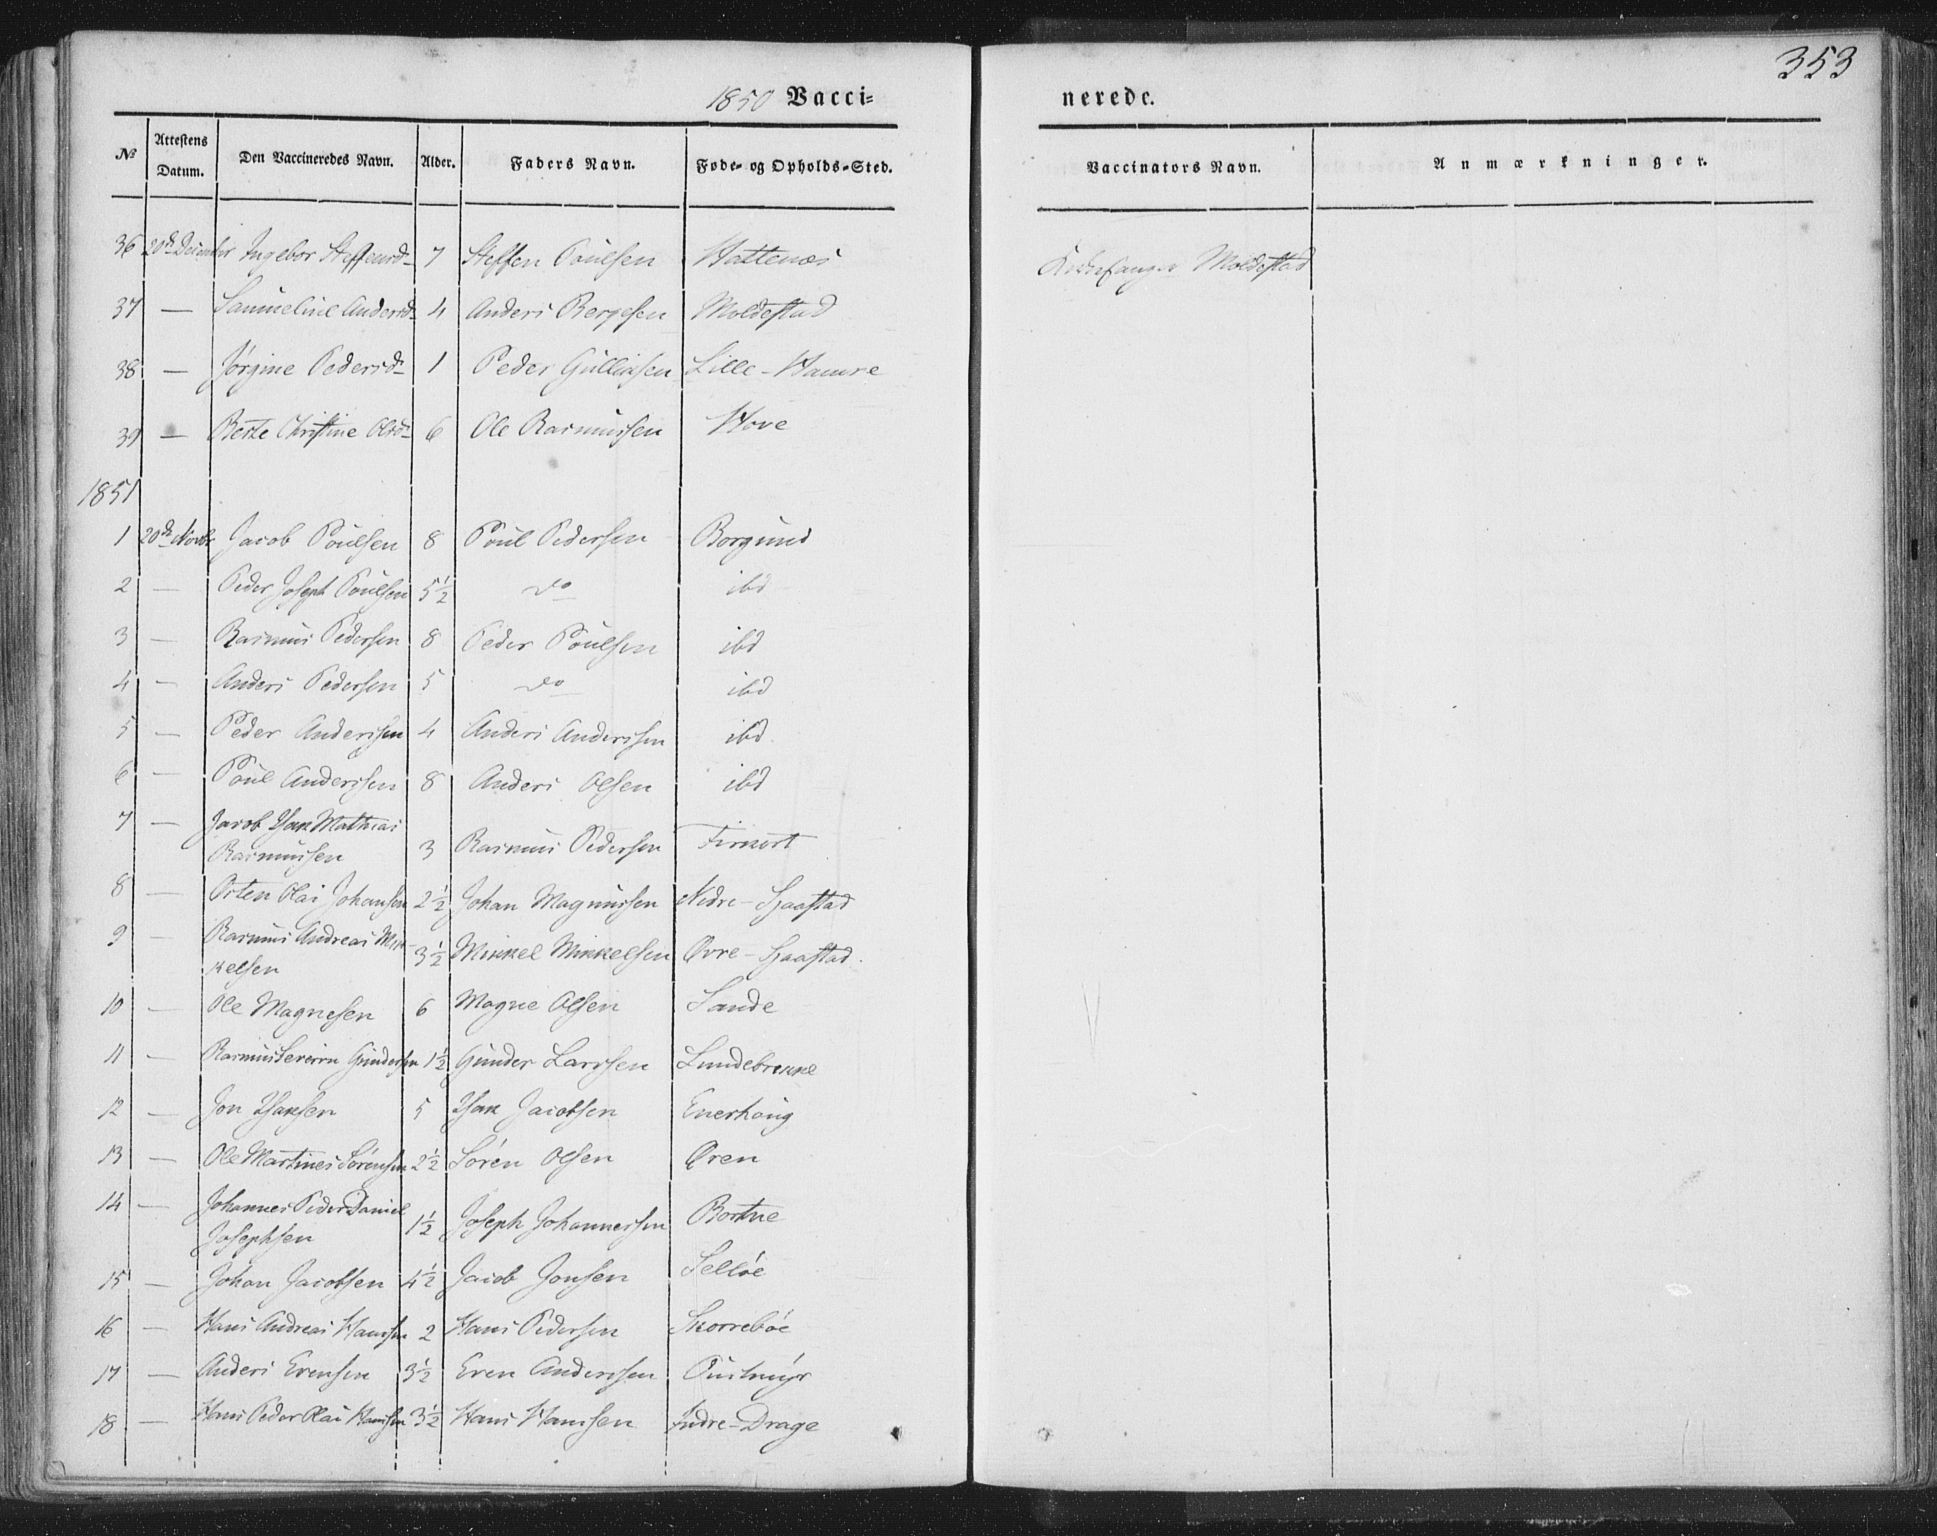 353
1850 Vacci= nerede.
№ Attestens Datum. Den Vaccineredes Navn. Alder. Faders Navn. Føde- og Opholds-Sted. Vaccinators Navn. Anmærkninger.
36 20de December Ingebor Steffensd. 7 Steffen Poulsen Hattenæs Kirkesanger Moldestad
37 — Samueline Andersd. 4 Anders Bergesen Moldestad
38 — Jørgine Pedersd. 1 Peder Gulliksen Lille-Hamre
39 — Berte Christine Olsd. 6 Ole Rasmussen Hove
1851
1 20de Novbr Jacob Poulsen 8 Poul Pedersen Borgund
2 — Peder Joseph Poulsen 5½ do ibd
3 — Rasmus Pedersen 8 Peder Poulsen ibd
4 — Anders Pedersen 5 do ibd
5 — Peder Anderssen 4 Anders Anderssen ibd
6 — Poul Anderssen 8 Anders Olsen ibd
7 — Jacob Isak Mathias
Rasmussen 3 Rasmus Pedersen
8 — Orten Olai Johansen 2½ Johan Magnussen Nedre-Haastad
9 — Rasmus Andreas Mik-
kelsen 3½ Mikkel Mikkelsen Øvre-Haastad.
10 — Ole Magnesen 6 Magne Olsen Sande
11 — Rasmus Severin Gundersen 1½ Gunder Larssen Lundebrekke
12 — Jon Isaksen 5 Isak Jacobsen Enerhaug
13 — Ole Martines Sørensen 2½ Søren Olsen Øren
14 — Johannes Peder Daniel
Josephsen 1½ Joseph Johannessen Bortne
15 — Johan Jacobsen 4½ Jacob Jonsen Selløe
16 — Hans Andreas Hanssen 2 Hans Pedersen Skorrebøe
17 — Anders Erensen 3½ Eren Anderssen
18 — Hans Peder Olai Hanssen 3½ Hans Hanssen Indre-Drage